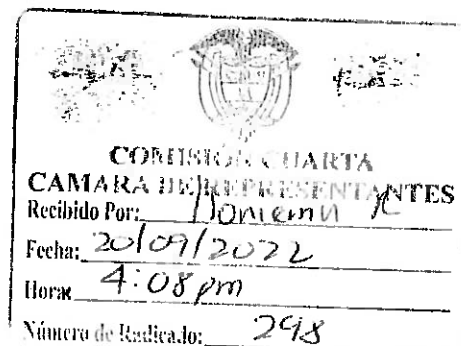 COMISIÓN CUARTA
CAMARA DE REPRESENTANTES
Recibido Por:
Fecha: 20/09/2022
Hora: 4:08 pm
Número de Radicado: 298